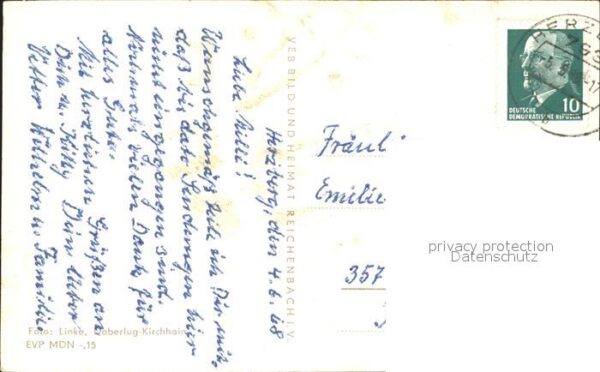 Herzberg, den 4.6.68
Liebe Milli!
Wunschgemäß teile ich Dir mit,
daß bis dato Sendungen hier
nicht eingegangen sind.
Nochmals vielen Dank für
alles Gute.
Mit herzlichen Grüßen an
Dich u. Kitty Dein lieber
Vetter Wilhelm u. Familie.
VEB BILD UND HEIMAT REICHENBACH I. V.
Foto: Linke, Doberlug-Kirchhain
EVP MDN -,15
HERZB
DEUTSCHE
DEMOKRATISCHE REPUBLIK
10
Fräul
Emilie
357
privacy protection
Datenschutz